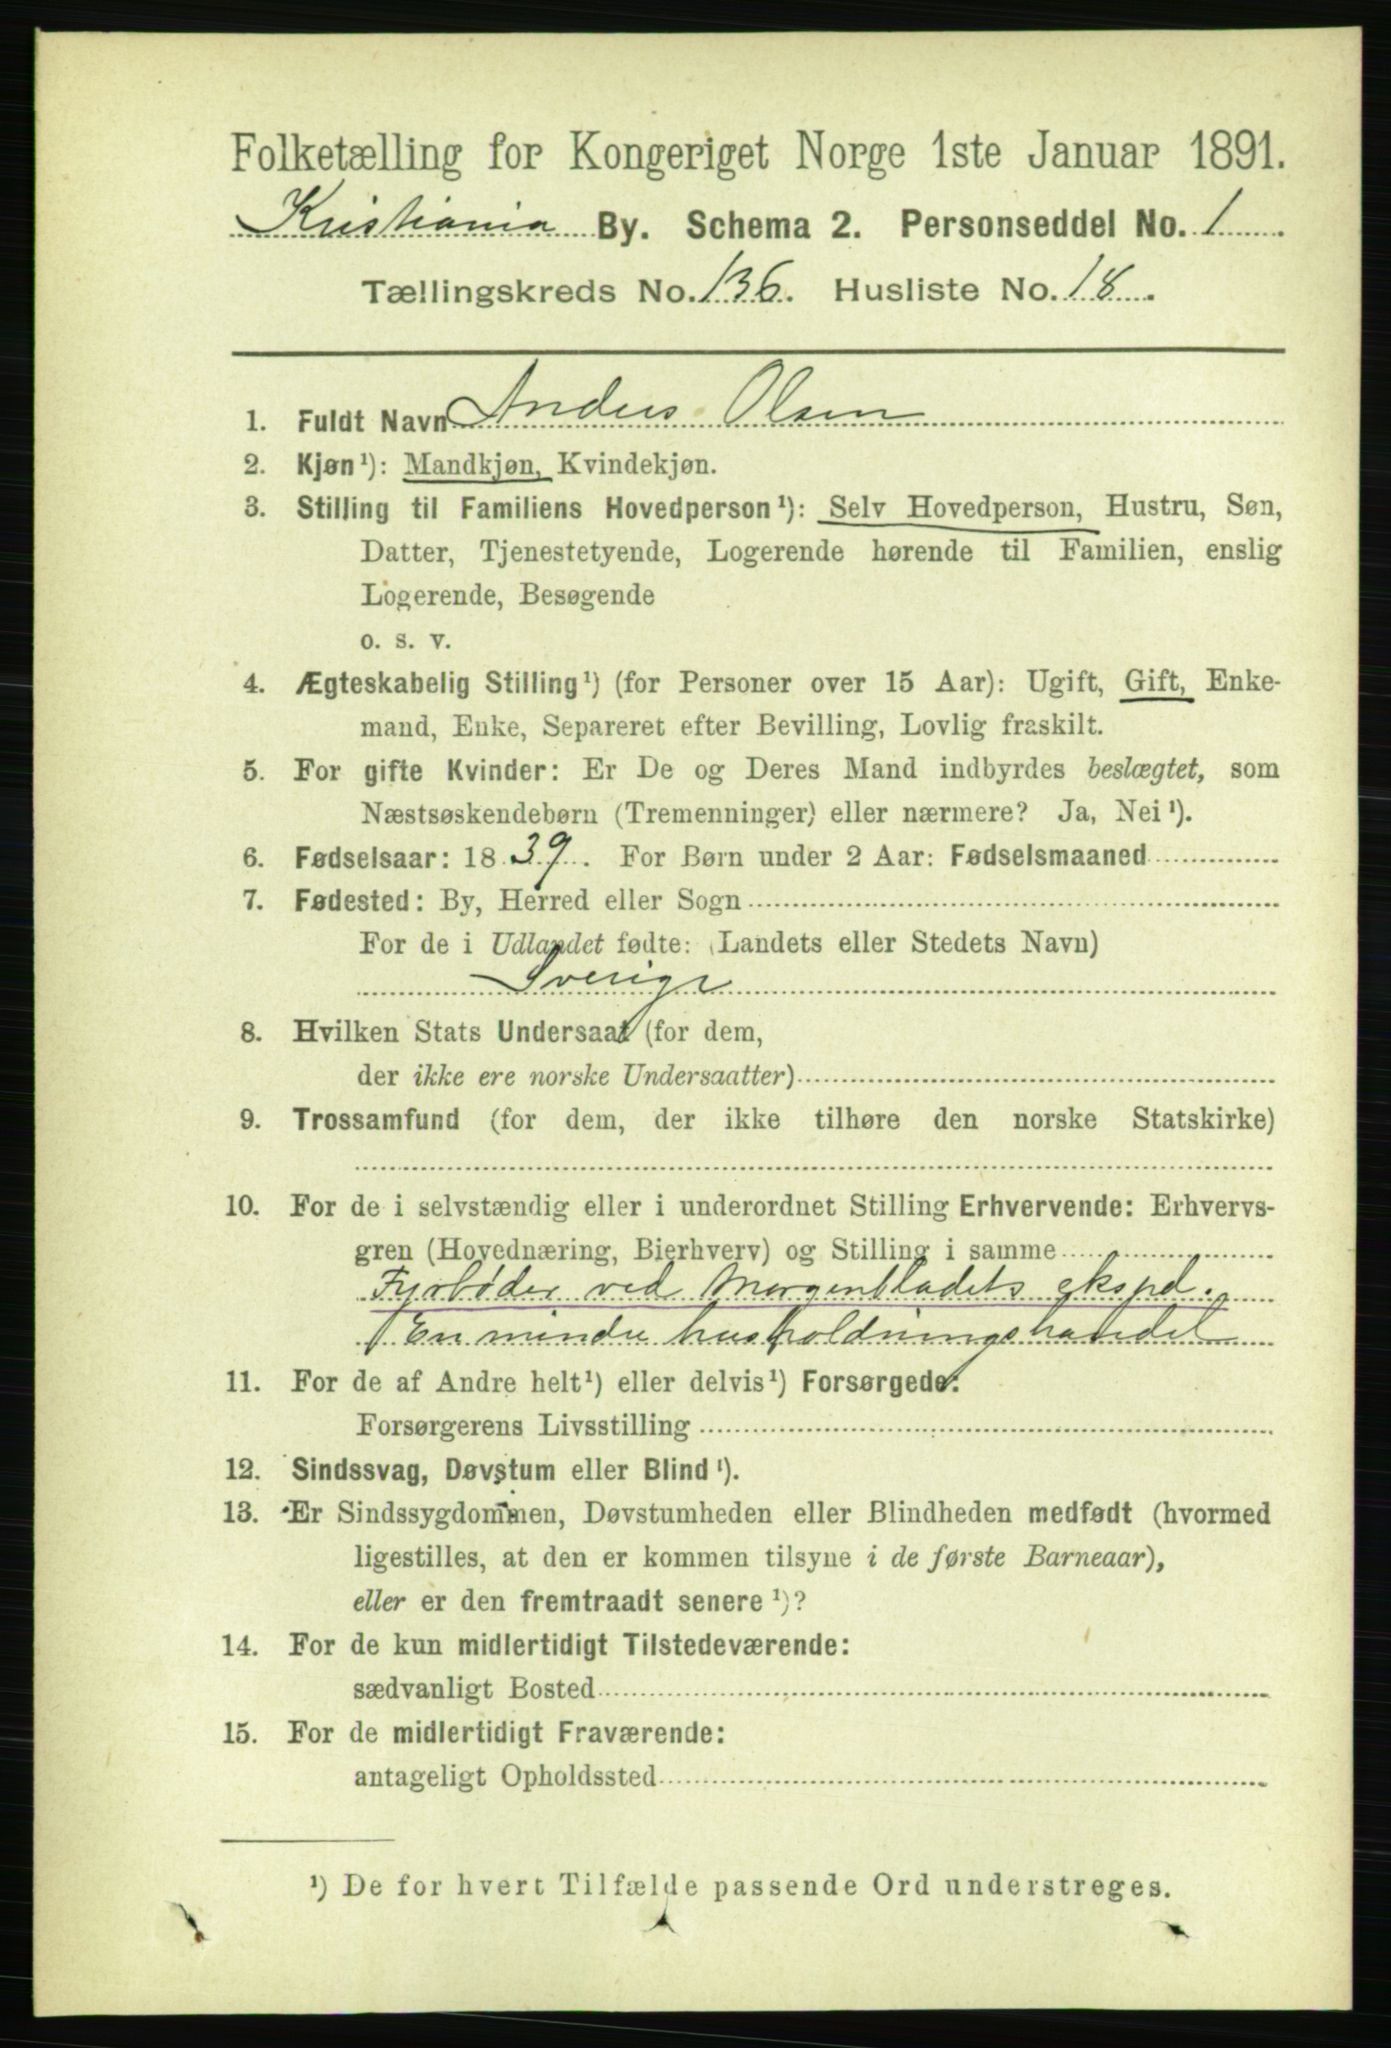 Folketælling for Kongeriget Norge 1ste Januar 1891.
Kristiania By. Schema 2. Personseddel No. 1
Tællingskreds No. 136. Husliste No. 18.
1. Fuldt Navn Anders Olsen
2. Kjøn¹): Mandkjøn, Kvindekjøn.
3. Stilling til Familiens Hovedperson¹): Selv Hovedperson, Hustru, Søn,
Datter, Tjenestetyende, Logerende hørende til Familien, enslig
Logerende, Besøgende
o. s. v.
4. Ægteskabelig Stilling¹) (for Personer over 15 Aar): Ugift, Gift, Enke-
mand, Enke, Separeret efter Bevilling, Lovlig fraskilt.
5. For gifte Kvinder: Er De og Deres Mand indbyrdes beslægtet, som
Næstsøskendebørn (Tremenninger) eller nærmere? Ja, Nei¹).
6. Fødselsaar: 1839. For Børn under 2 Aar: Fødselsmaaned
7. Fødested: By, Herred eller Sogn
For de i Udlandet fødte: (Landets eller Stedets Navn)
Sverige
8. Hvilken Stats Undersaat (for dem,
der ikke ere norske Undersaatter)
9. Trossamfund (for dem, der ikke tilhøre den norske Statskirke)
10. For de i selvstændig eller i underordnet Stilling Erhvervende: Erhvervs-
gren (Hovednæring, Bierhverv) og Stilling i samme
Fyrbøder ved Morgenbladets ekspd.
En mindre husholdningshandel
11. For de af Andre helt¹) eller delvis¹) Forsørgede:
Forsørgerens Livsstilling
12. Sindssvag, Døvstum eller Blind¹).
13. Er Sindssygdommen, Døvstumheden eller Blindheden medfødt (hvormed
ligestilles, at den er kommen tilsyne i de første Barneaar),
eller er den fremtraadt senere¹)?
14. For de kun midlertidigt Tilstedeværende:
sædvanligt Bosted
15. For de midlertidigt Fraværende:
antageligt Opholdssted
¹) De for hvert Tilfælde passende Ord understreges.